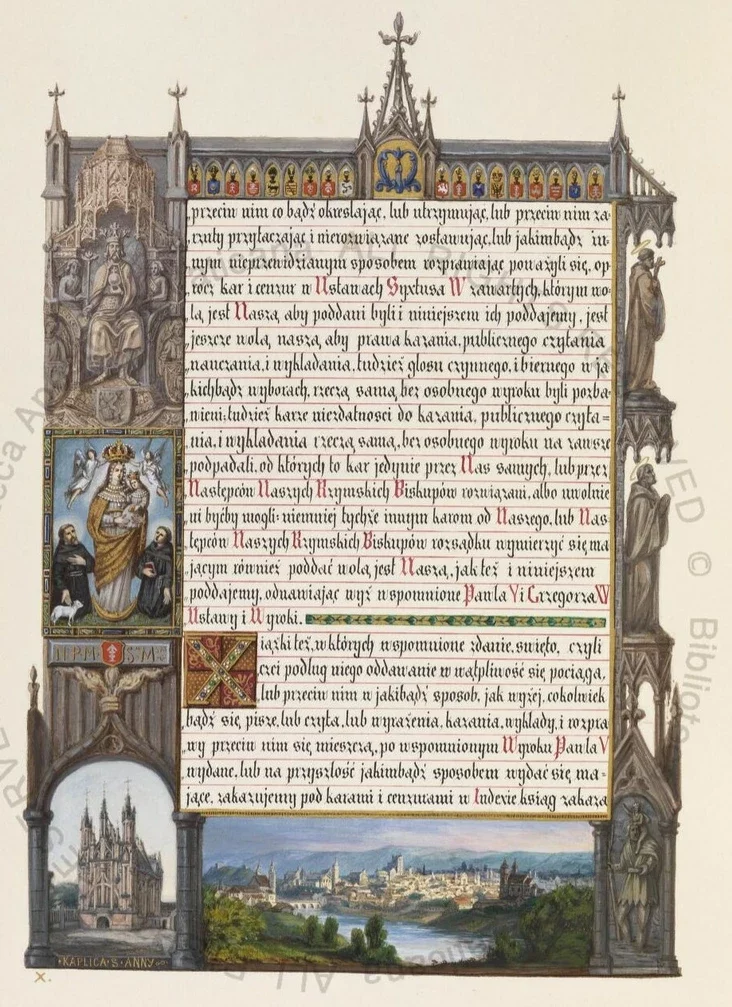 przeciw nim co bądź określając, lub utrzymując, lub przeciw nim za-
rzuty przytaczając i nierozwiązane zostawując, lub jakimbądź in-
nym nieprzewidzianym sposobem rozprawiając poważyli się, op-
rócz kar i cenzur w Ustawach Syxtusa IV zawartych, którym wo-
lą jest Naszą, aby poddani byli i niniejszem ich poddajemy, jest
jeszcze wolą naszą, aby prawa kazania, publicznego czytania
nauczania, i wykladania, tudzież głosu czynnego, i biernego w ja
kichbądź wyborach, rzeczą samą, bez osobnego wyroku byli pozba-
wieni; tudzież karze niezdatności do kazania, publicznego czyta=
nia, i wykladania rzeczą samą, bez osobnego wyroku na zawsze
podpadali, od których to kar jedynie przez Nas samych, lub przez
Następców Naszych Rzymskich Biskupów rozwiązani, albo uwolnie
ni byćby mogli: niemniej tychże innym karom od Naszego, lub Nas-
tępców Naszych Rzymskich Biskupów rozsądku wymierzyć się ma
jącym również poddać wolą jest Naszą, jak też i niniejszem
poddajemy, odnawiając wyż wspomnione Pawla V i Grzegorza XV
Ustawy i Wyroki.
Xiążki też, w których wspomnione zdanie, święto, czyli
czci podług niego oddawanie w wątpliwość się pociąga,
lub przeciw nim w jakibądź sposob, jak wyżej, cokolwiek
bądź się pisze, lub czyta, lub wyrażenia, kazania, wyklady, i rozpra
wy przeciw nim się mieszczą, po wspomnionym Wyroku Pawla V
wydane, lub na przyszłość jakimbądź sposobem wydać się ma=
jące, zakazujemy pod karami i cenzurami w Indexie ksiąg zakaza
KAPLICA S. ANNY
X.
© Bibliote